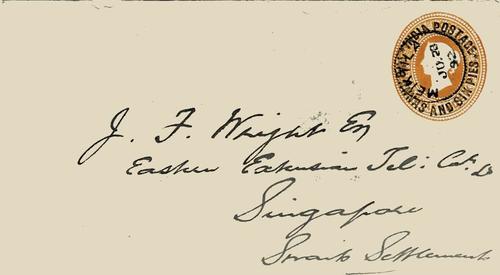 INDIA POSTAGE
ANNAS AND SIX PIES
JU 28
92
J. F. Wright Esq
Eastern Extension Tel: Co. Ld
Singapore
Straits Settlements